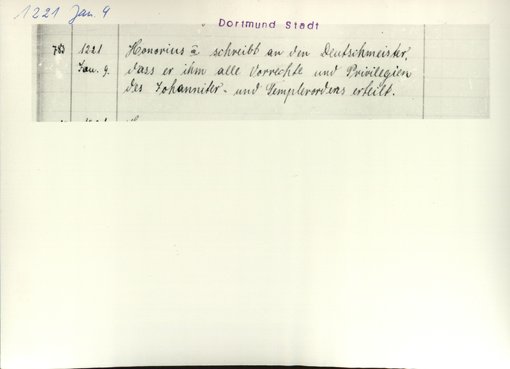 1221 Jan. 9
Dortmund Stadt
1221 Honorius III schreibt an den Deutschmeister,
Jan. 9. dass er ihm alle Vorrechte und Privilegien
des Johanniter- und Templerordens erteilt.